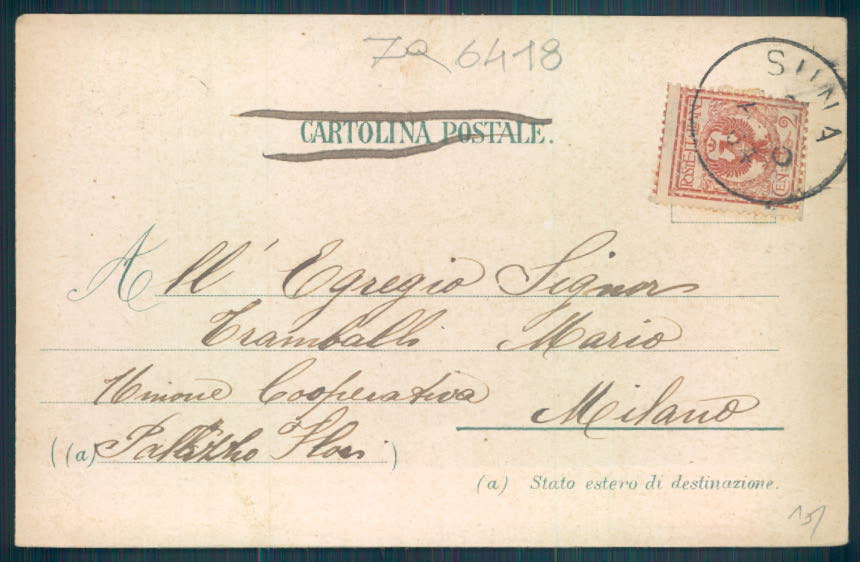 ZQ 6418
CARTOLINA POSTALE.
SUNA
POSTE ITALIANE
CENT 2
All' Egregio Signor
Tramballi Mario
Unione Cooperativa
Milano
(a) Palazzo Flori
(a) Stato estero di destinazione.